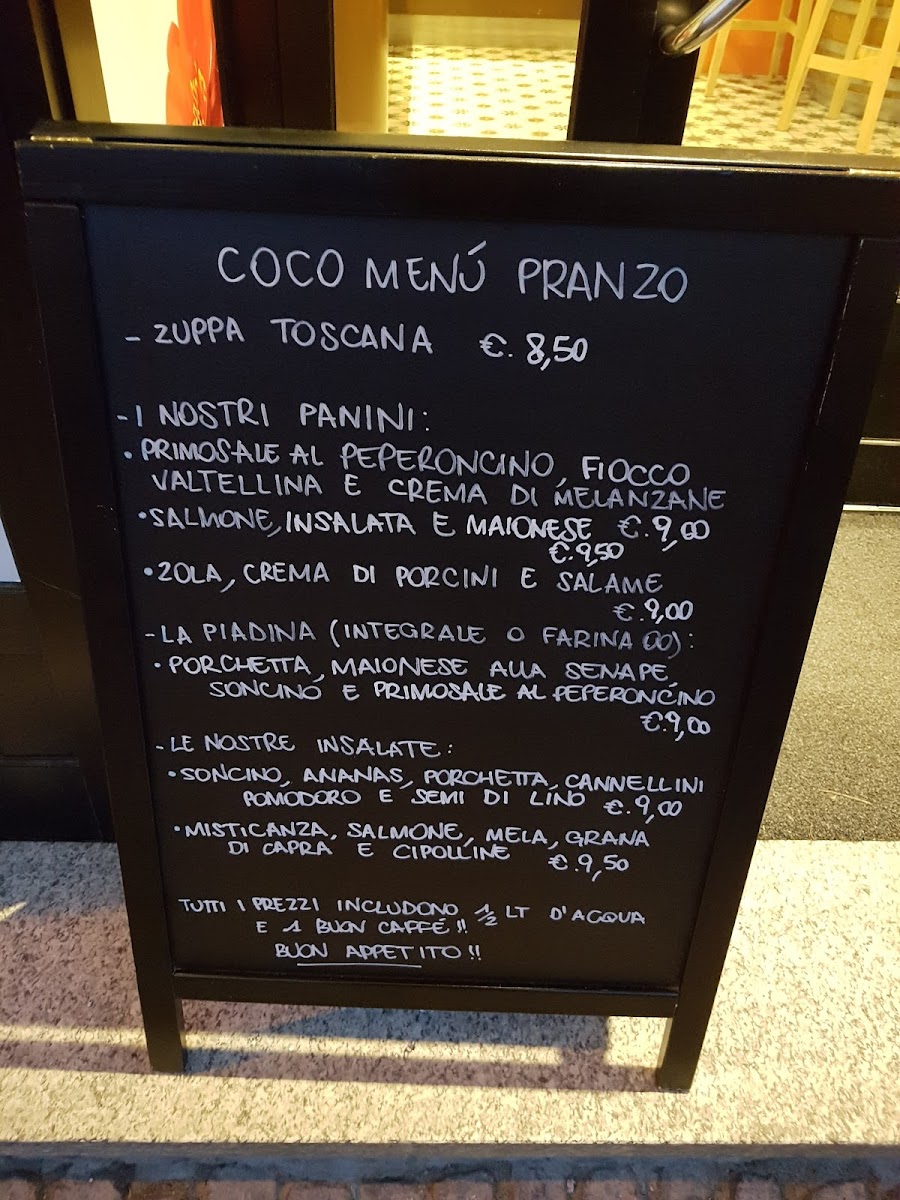 COCO MENÚ PRANZO
- ZUPPA TOSCANA €. 8,50
- I NOSTRI PANINI:
• PRIMOSALE AL PEPERONCINO, FIOCCO
VALTELLINA E CREMA DI MELANZANE
• SALMONE, INSALATA E MAIONESE €. 9,00
€. 9,50
• ZOLA, CREMA DI PORCINI E SALAME
€. 9,00
- LA PIADINA (INTEGRALE O FARINA 00):
• PORCHETTA, MAIONESE ALLA SENAPE,
SONCINO E PRIMOSALE AL PEPERONCINO
€. 9,00
- LE NOSTRE INSALATE:
• SONCINO, ANANAS, PORCHETTA, CANNELLINI
POMODORO E SEMI DI LINO €. 9,00
• MISTICANZA, SALMONE, MELA, GRANA
DI CAPRA E CIPOLLINE €. 9,50
TUTTI I PREZZI INCLUDONO 1/2 LT D'ACQUA
E 1 BUON CAFFÉ!!
BUON APPETITO!!